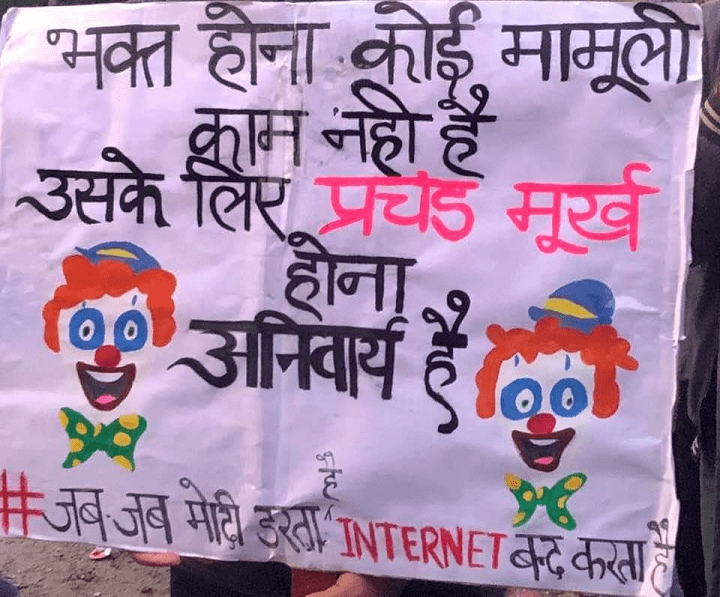 भक्त होना कोई मामूली
काम नही है
उसके लिए प्रचंड मूर्ख
होना
अनिवार्य है
#जब-जब मोदी डरता है INTERNET बन्द करता है